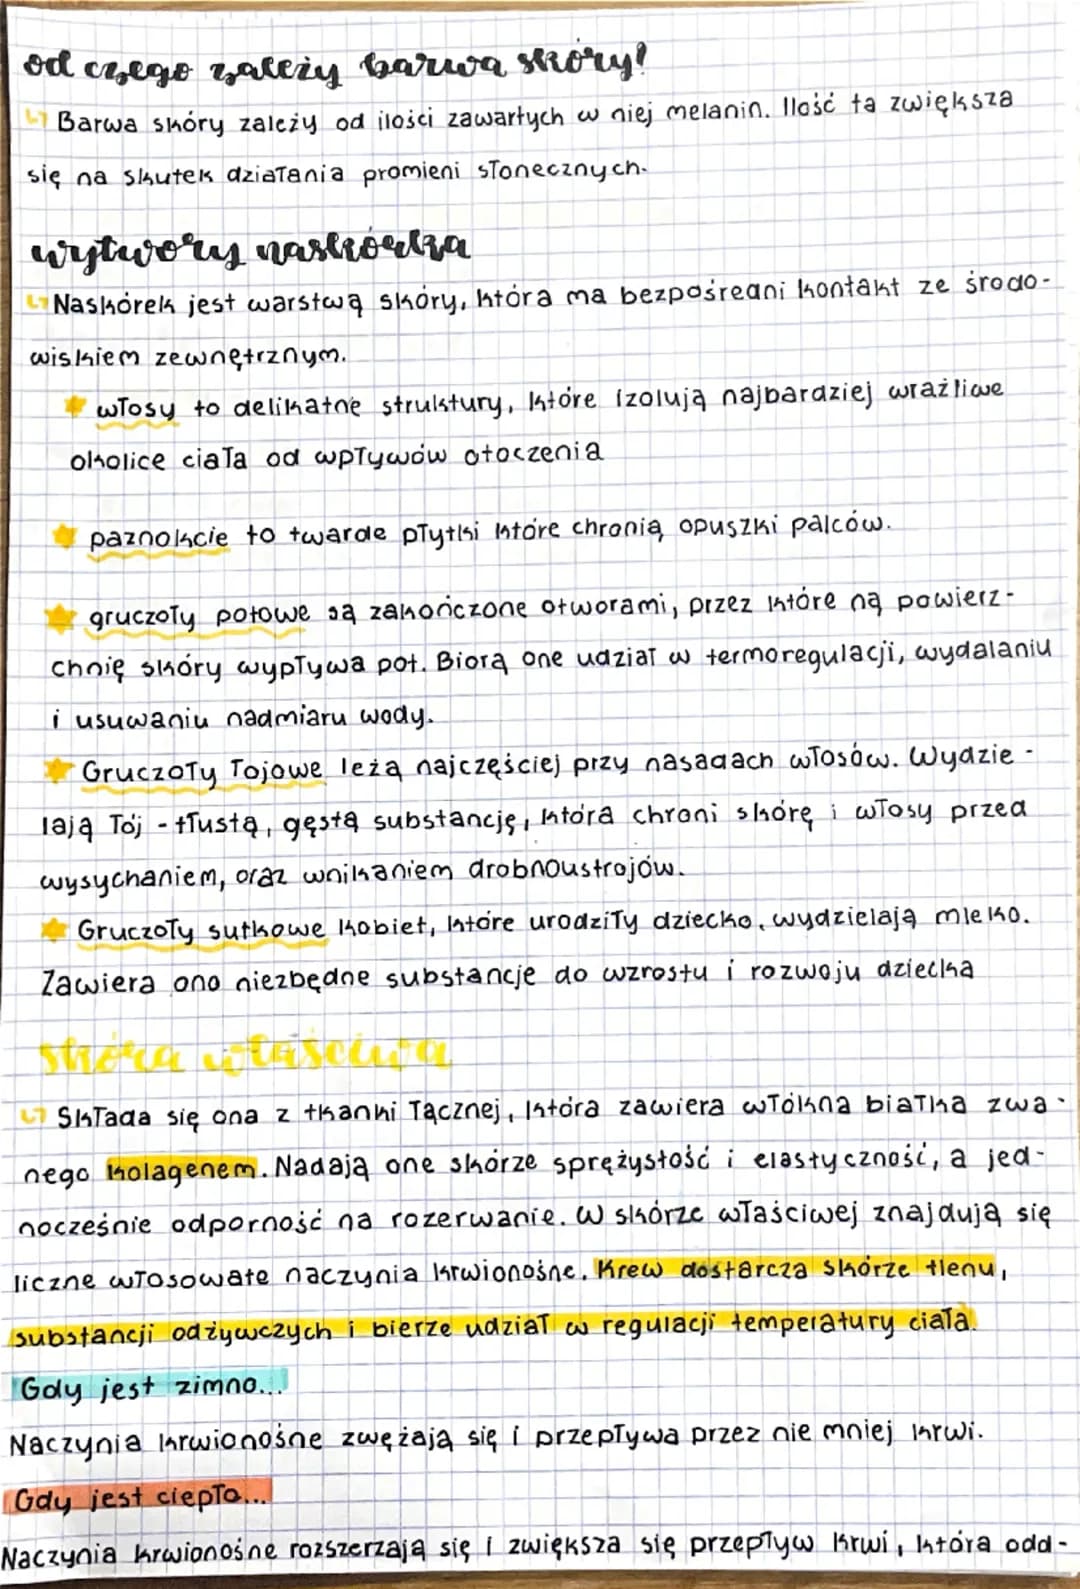 od czego zależy barwa skóry?
↳ Barwa skóry zależy od ilości zawartych w niej melanin. Ilość ta zwiększa
się na skutek działania promieni słonecznych.
wytwory naskórka
↳ Naskórek jest warstwą skóry, która ma bezpośredni kontakt ze środo-
wiskiem zewnętrznym.
włosy to delikatne struktury, które izolują najbardziej wrażliwe
okolice ciała od wpływów otoczenia
paznokcie to twarde płytki które chronią opuszki palców.
gruczoły potowe są zakończone otworami, przez które ną powierz-
chnię skóry wypływa pot. Biorą one udział w termoregulacji, wydalaniu
i usuwaniu nadmiaru wody.
Gruczoły łojowe leżą najczęściej przy nasadach włosów. Wydzie-
lają łój - tłustą, gęstą substancję, która chroni skórę i włosy przed
wysychaniem, oraz wnikaniem drobnoustrojów.
Gruczoły sutkowe kobiet, które urodziły dziecko, wydzielają mleko.
Zawiera ono niezbędne substancje do wzrostu i rozwoju dziecka
skóra właściwa
↳ Składa się ona z tkanki łącznej, która zawiera włókna białka zwa-
nego kolagenem. Nadają one skórze sprężystość i elastyczność, a jed-
nocześnie odporność na rozerwanie. W skórze właściwej znajdują się
liczne włosowate naczynia krwionośne. Krew dostarcza skórze tlenu,
substancji odżywczych i bierze udział w regulacji temperatury ciała.
Gdy jest zimno...
Naczynia krwionośne zwężają się i przepływa przez nie mniej krwi.
Gdy jest ciepło...
Naczynia krwionośne rozszerzają się i zwiększa się przepływ krwi, która odd-